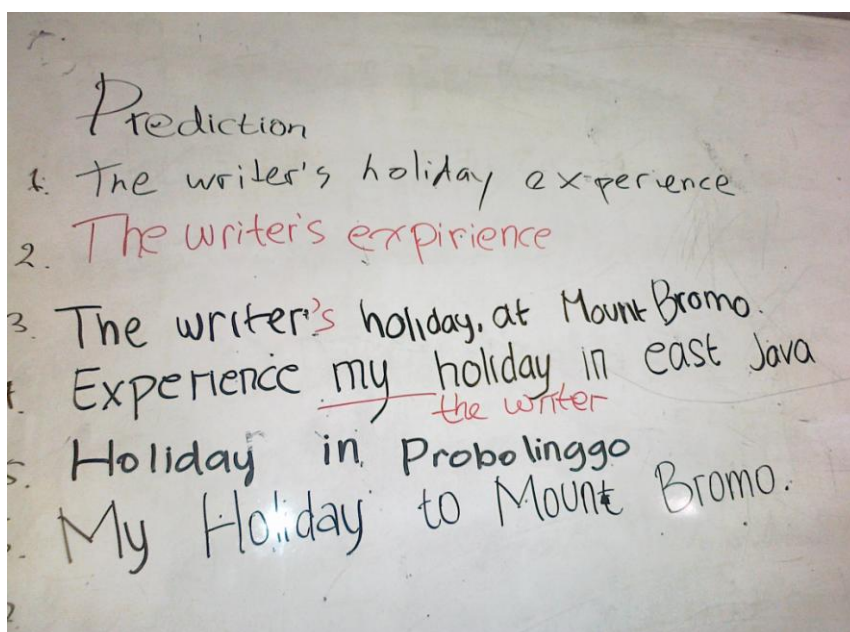 Prediction
1. The writer's holiday experience
2. The writer's expirience
3. The writer's holiday, at Mount Bromo.
Experience my holiday in east Java
the writer
5. Holiday in Probolinggo
My Holiday to Mount Bromo.